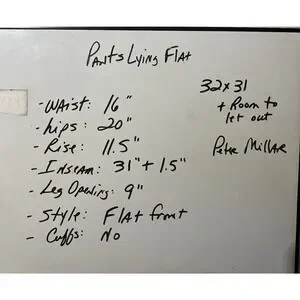 Pants Lying Flat
- Waist: 16"
- hips: 20"
- Rise: 11.5"
- Inseam: 31" + 1.5"
- Leg Opening: 9"
- Style: Flat front
- Cuffs: No
32x31
+ Room to
let out
Peter Millar